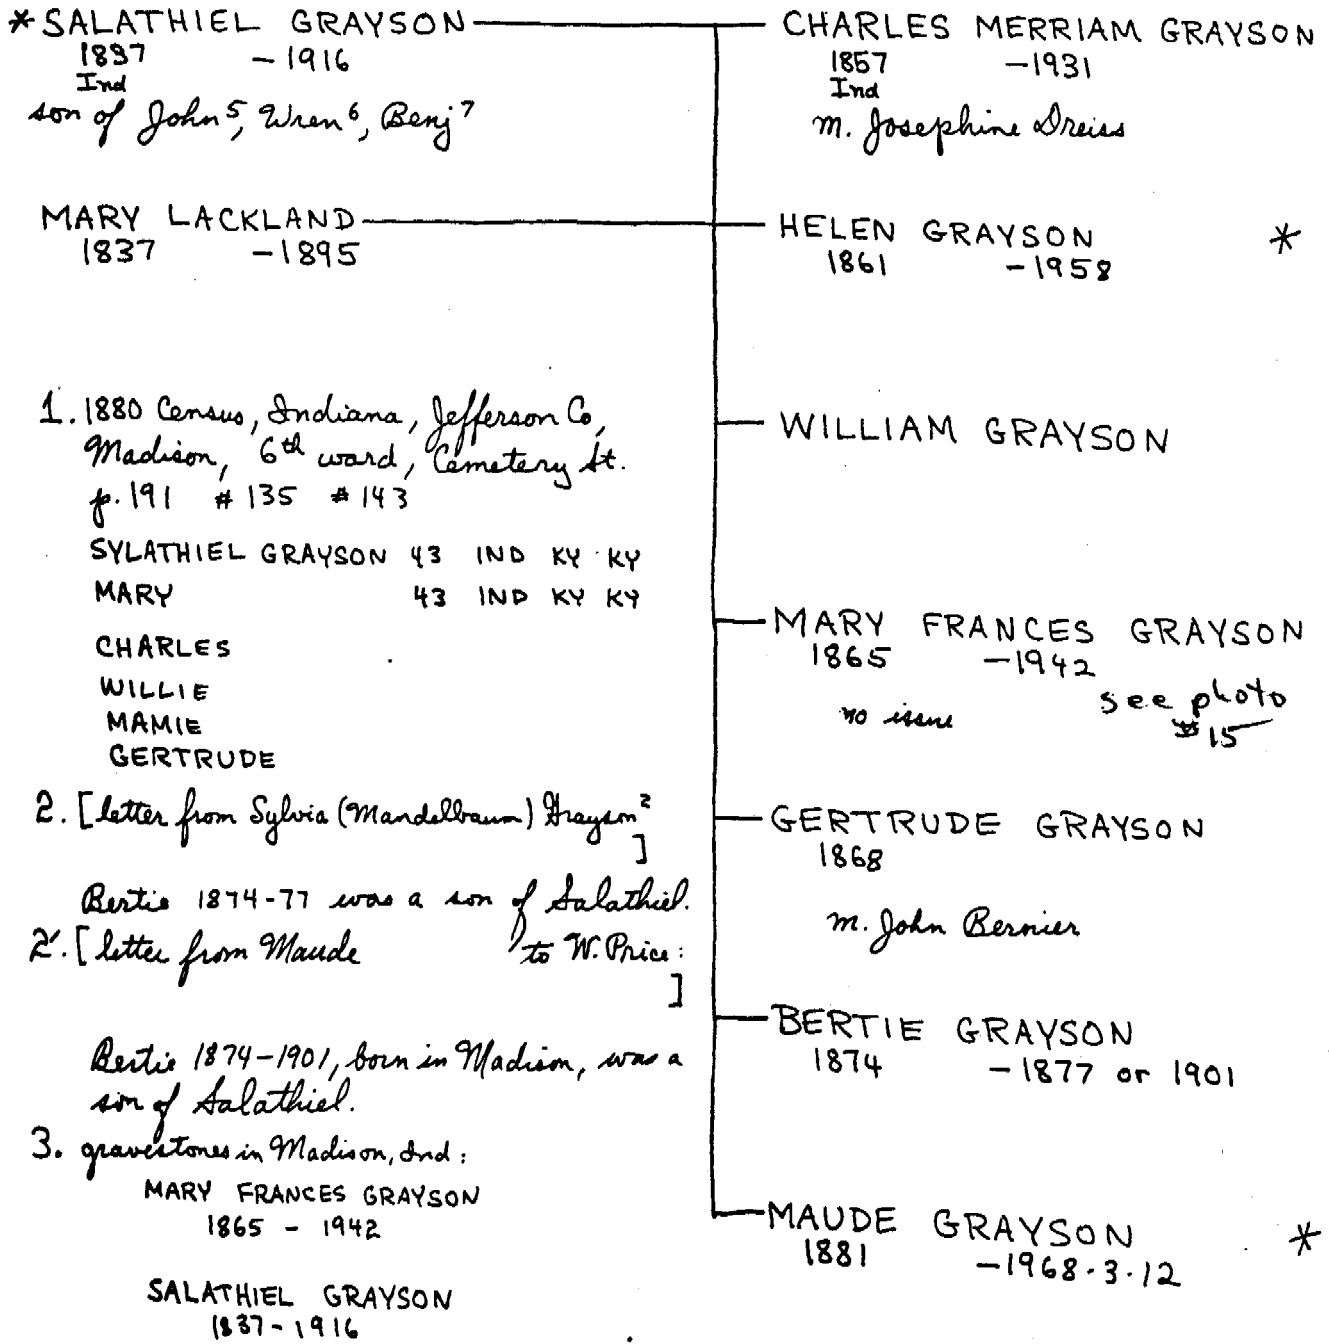 * SALATHIEL GRAYSON
1837 - 1916
Ind
son of John⁵, Wren⁶, Benj⁷
MARY LACKLAND
1837 - 1895
1. 1880 Census, Indiana, Jefferson Co,
Madison, 6th ward, Cemetery St.
p. 191 # 135 # 143
SYLATHIEL GRAYSON 43 IND KY KY
MARY 43 IND KY KY
CHARLES
WILLIE
MAMIE
GERTRUDE
2. [letter from Sylvia (Mandelbaum) Grayson²
]
Bertie 1874-77 was a son of Salathiel.
2'. [letter from Maude to W. Price:
]
Bertie 1874-1901, born in Madison, was a
son of Salathiel.
3. gravestones in Madison, Ind:
MARY FRANCES GRAYSON
1865 - 1942
SALATHIEL GRAYSON
1837-1916
CHARLES MERRIAM GRAYSON
1857 -1931
Ind
m. Josephine Dreiss
HELEN GRAYSON *
1861 -1958
WILLIAM GRAYSON
MARY FRANCES GRAYSON
1865 -1942
no issue
see photo
# 15
GERTRUDE GRAYSON
1868
m. John Bernier
BERTIE GRAYSON
1874 -1877 or 1901
MAUDE GRAYSON *
1881 -1968.3.12